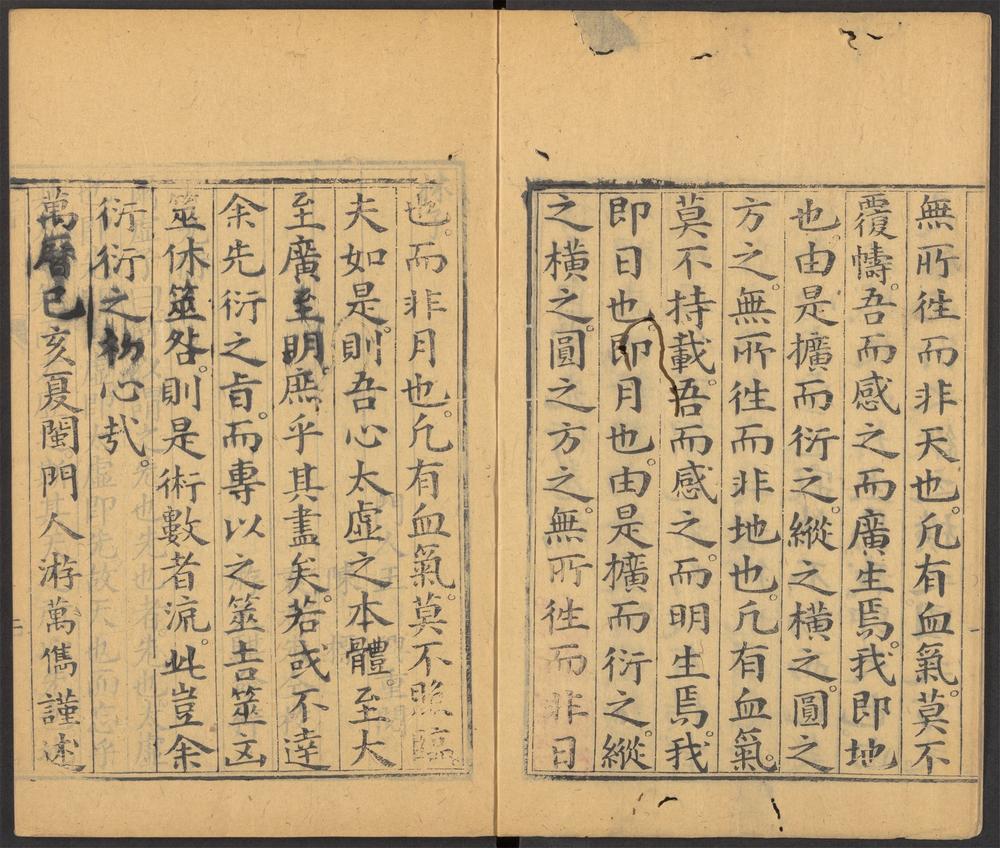 無所徃而非天也。凡有血氣。莫不
覆幬。吾而感之。而廣生焉。我即地
也。由是擴而衍之。縱之橫之。圓之
方之。無所徃而非地也。凡有血氣。
莫不持載。吾而感之。而明生焉。我
即日也。即月也。由是擴而衍之。縱
之橫之。圓之方之。無所徃而非日
也。而非月也。凡有血氣。莫不照臨。
夫如是。則吾心太虛之本體。至大
至廣至明。庶乎其盡矣。若或不達
余先衍之旨。而專以之筮吉筮凶
筮休筮咎。則是術數者流。此豈余
衍衍之初心哉。
萬曆己亥夏閩門人游萬儁謹述